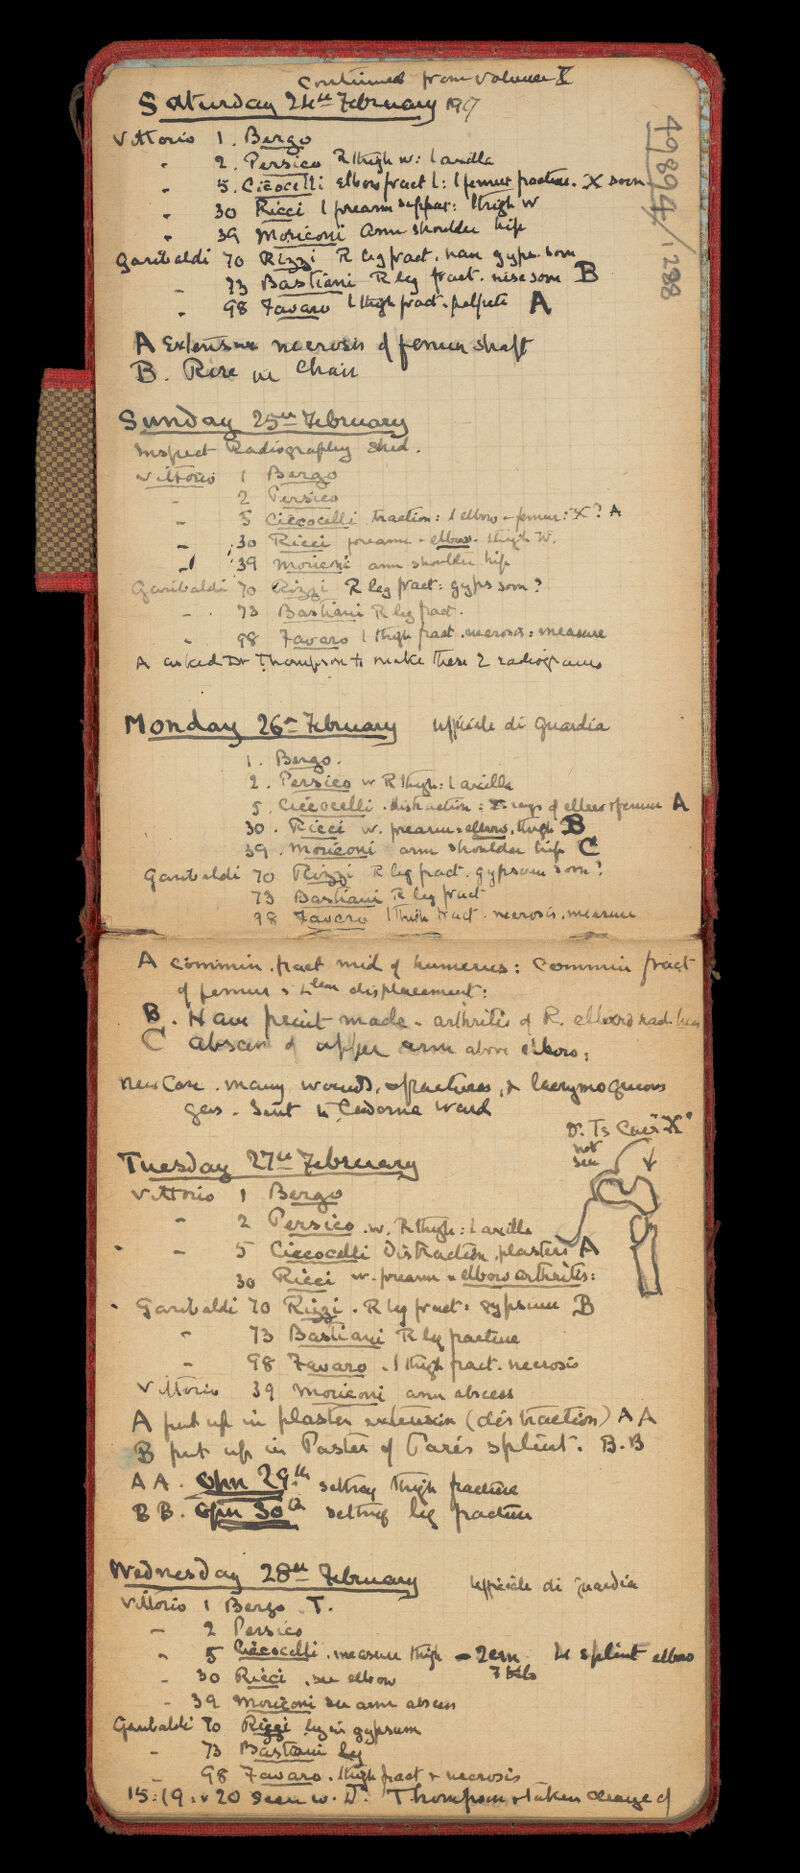 Continued from Volume X
Saturday 24th February 1917
498949/1288
Vittorio 1. Bergo
" 2. Persico R thigh w: l axilla
" 5. Ciccocelli elbow fract L: l femur fracture. X soon
" 30 Ricci l forearm suppur: thigh w
" 39 Moriconi arm shoulder hip
Garibaldi 70 Rizzi R leg fract. have gyps. soon
" 73 Bastiani R leg fract. rise soon B
" 98 Favaro l thigh fract. A
A Extensive necrosis of femur shaft
B. Rose in Chair
Sunday 25th February
Inspect Radiography Shed.
Vittorio 1 Bergo
" 2 Persico
" 5 Ciccocelli traction: l elbow + femur: X? A
" 30 Ricci forearm + elbow. thigh w.
" 39 Moriconi arm shoulder hip
Garibaldi 70 Rizzi R leg fract: gyps soon?
" 73 Bastiani R leg fract.
" 98 Favaro l thigh fract. necrosis: measure
A asked Dr Thompson to make these 2 radiograms
Monday 26th February Ufficiale di Guardia
1. Bergo.
2. Persico w R thigh: l axilla
5. Ciccocelli. distraction: X rays of elbow + femur A
30. Ricci w. forearm + elbow, thigh B
39. Moriconi arm shoulder hip C
Garibaldi 70 Rizzi R leg fract. gypsum soon?
73 Bastiani R leg fract
98 Favaro l thigh fract. necrosis. measure
A commin. fract mid of humerus: commin fract
of femur + displacement:
B. Have print made. arthritis of R. elbow rad. head
C abscess of upper arm above elbow:
New Case. many wounds, fractures, & lacrymogenous
gas. Sent to Cadorna Ward
Dr. T's Case "X"
not
see
Tuesday 27th February
Vittorio 1 Bergo
" 2 Persico. w. R thigh: l axilla
" 5 Ciccocelli Distraction, plasters A
30 Ricci w. forearm + elbow arthritis:
Garibaldi 70 Rizzi. R leg fract: gypsum B
" 73 Bastiani R leg fracture
" 98 Favaro. l thigh fract. necrosis
Vittorio 39 Moriconi arm abscess
A put up in plaster extension (distraction) AA
B put up in Paster of Paris splint. B.B
AA. Opn 29th setting thigh fracture
BB. Opn 30th setting leg fracture
Wednesday 28th February Ufficiale di Guardia
Vittorio 1 Bergo T.
" 2 Persico
" 5 Ciccocelli. measure thigh - 2cm splint elbow
7 kilo
" 30 Ricci. see elbow
" 39 Moriconi see arm abscess
Garibaldi 70 Rizzi leg in gypsum
" 73 Bastiani leg
" 98 Favaro. thigh fract + necrosis
15:19: + 20 Seen w. Dr. Thompson + taken charge of